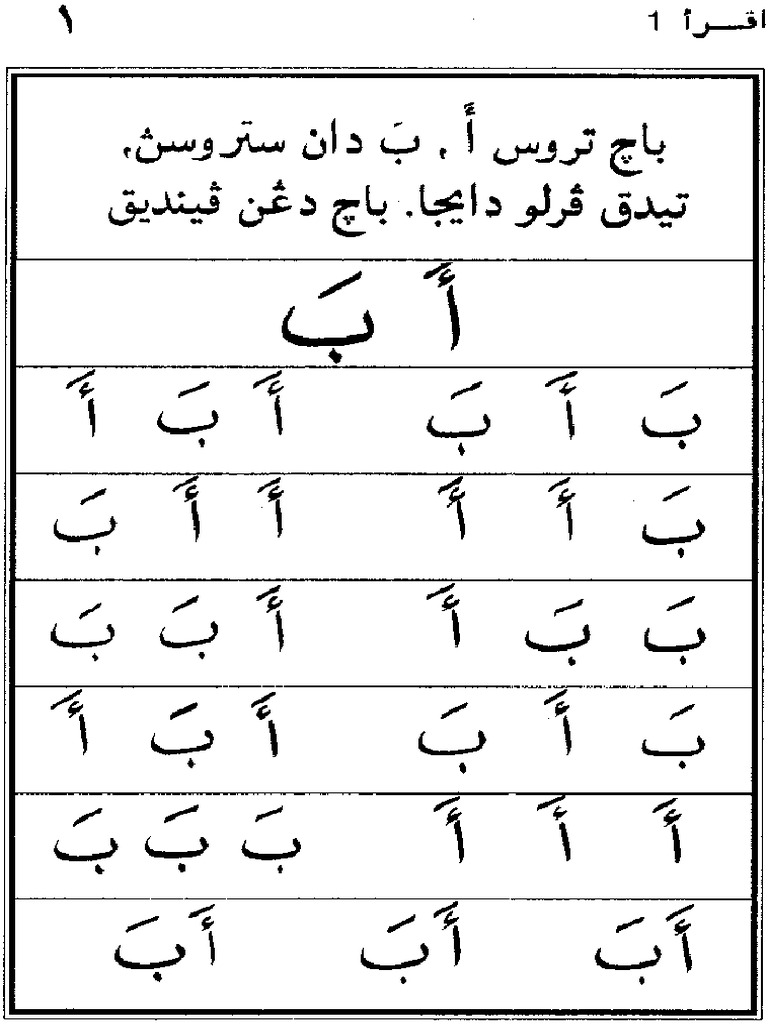 اقرأ 1 ١
باچ تروس أَ ، بَ دان ستروسڽ،
تيدق ڤرلو دايجا. باچ دڠن ڤينديق
أَ بَ
بَ أَ بَ أَ بَ أَ
بَ أَ أَ أَ أَ بَ
بَ بَ أَ أَ بَ بَ
بَ أَ بَ أَ بَ أَ
أَ أَ أَ بَ بَ بَ
أَبَ أَبَ أَبَ